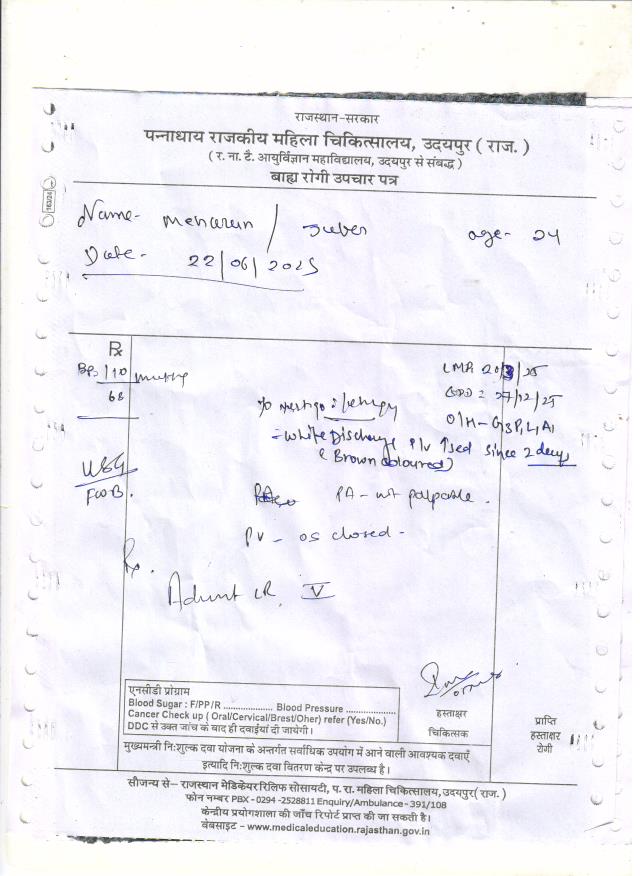 राजस्थान-सरकार
पन्नाधाय राजकीय महिला चिकित्सालय, उदयपुर ( राज. )
( र. ना. टै. आयुर्विज्ञान महाविद्यालय, उदयपुर से संबद्ध )
बाह्य रोगी उपचार पत्र
Name- Meharun / Juber age- 24
Date- 22/06/2025
Rx
BP: 110 mmHg
68
LMP 20/3/25
EDD = 27/12/25
O/H- G3P1L1A1
= White Discharge P/V ↑sed since 2 days
( Brown coloured)
USG
FWB.
PA - palpable.
PV - os closed -
Rx.
Admit LR V
एनसीडी प्रोग्राम
Blood Sugar : F/PP/R .................... Blood Pressure ....................
Cancer Check up ( Oral/Cervical/Brest/Oher) refer (Yes/No.)
DDC से उक्त जांच के बाद ही दवाईयां दी जायेगी।
हस्ताक्षर
चिकित्सक
प्राप्ति
हस्ताक्षर
रोगी
मुख्यमन्त्री नि:शुल्क दवा योजना के अन्तर्गत सर्वाधिक उपयोग में आने वाली आवश्यक दवाएँ
इत्यादि नि:शुल्क दवा वितरण केन्द्र पर उपलब्ध है।
सौजन्य से– राजस्थान मेडिकेयर रिलिफ सोसायटी, प. रा. महिला चिकित्सालय, उदयपुर( राज. )
फोन नम्बर PBX - 0294 -2528811 Enquiry/Ambulance - 391/108
केन्द्रीय प्रयोगशाला की जाँच रिपोर्ट प्राप्त की जा सकती है।
वेबसाइट - www.medicaleducation.rajasthan.gov.in